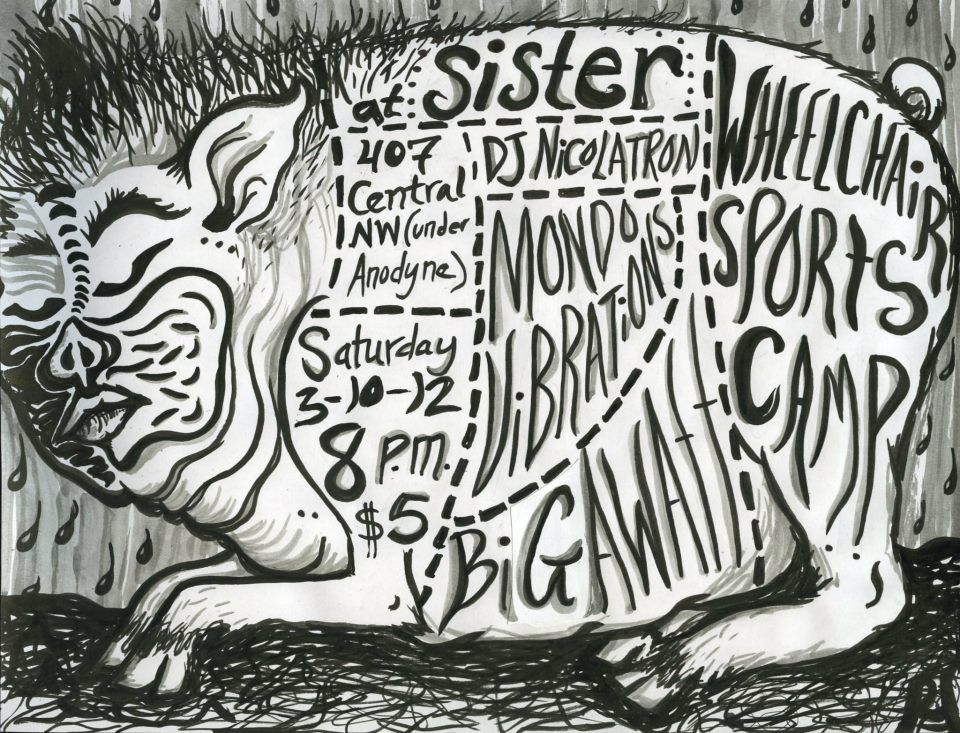 at: sister
407
Central
NW (under
Anodyne)
Saturday
3-10-12
8 p.m.
$5
DJ NiCOLATRON
MONDO
ViBRATiONS
BiG-A WATT
WHEELCHAiR
SPORTS
CAMP